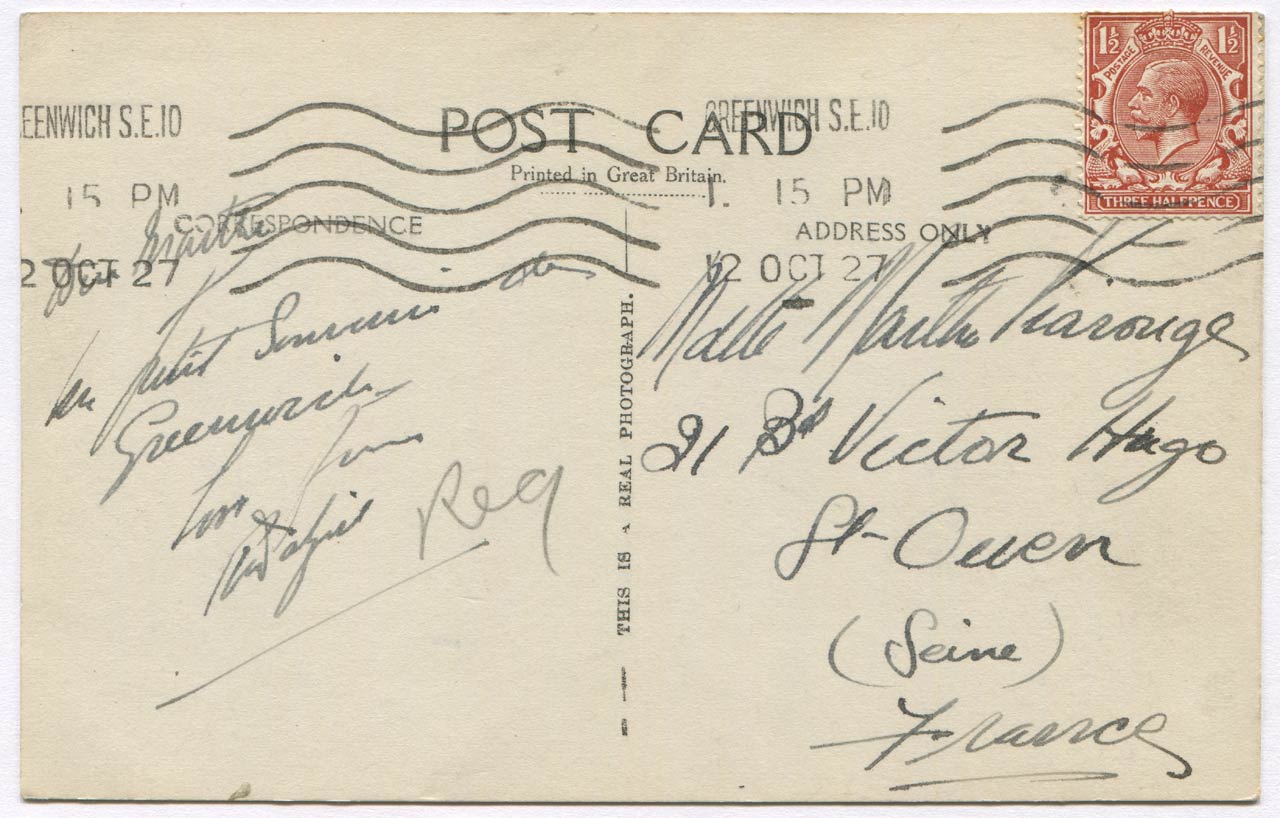 POST CARD
Printed in Great Britain.
EENWICH S.E.10
15 PM
2 OCT 27
GREENWICH S.E.10
1. 15 PM
12 OCT 27
1½ 1½
POSTAGE REVENUE
THREE HALFPENCE
CORRESPONDENCE
ADDRESS ONLY
Marthe
un petit Souvenir de
Greenwich
Reg
THIS IS A REAL PHOTOGRAPH.
Melle Marthe
21 Bd Victor Hugo
St-Ouen
(Seine)
France